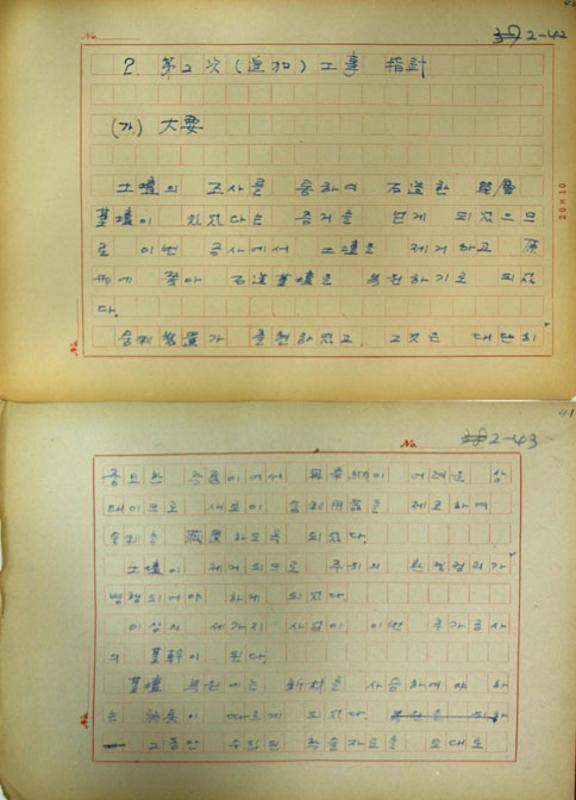 40
No.
39 2-42
2. 第2次(追加)工事 指針
(가) 大要
土壇의 조사를 통하여 石造한
基壇이 있었다는 증거를 얻게 되었으므
로 이번 공사에서 土壇을 제거하고 原
形에 쫓아 石造基壇을 복원하기로 되었
다.
舍利 가 출현하였고, 그것은 대단히
20×10
No.
41
No.
38 2-43
중요한 이어서 이 어려운 상
태이므로 새로이 舍利用器를 제조하여
舍利를 하도록 되었다.
土壇이 제거되므로 주위의 환경정리가
병행되어야 하게 되었다
이상의 세가지 사업이 이번 추가공사
의 基幹이 된다.
基壇 복원에는 新材를 사용하여야 하
는 이 따르게 되었다. 복원을 위하
그동안 수집된 학술자료를 토대로
No.